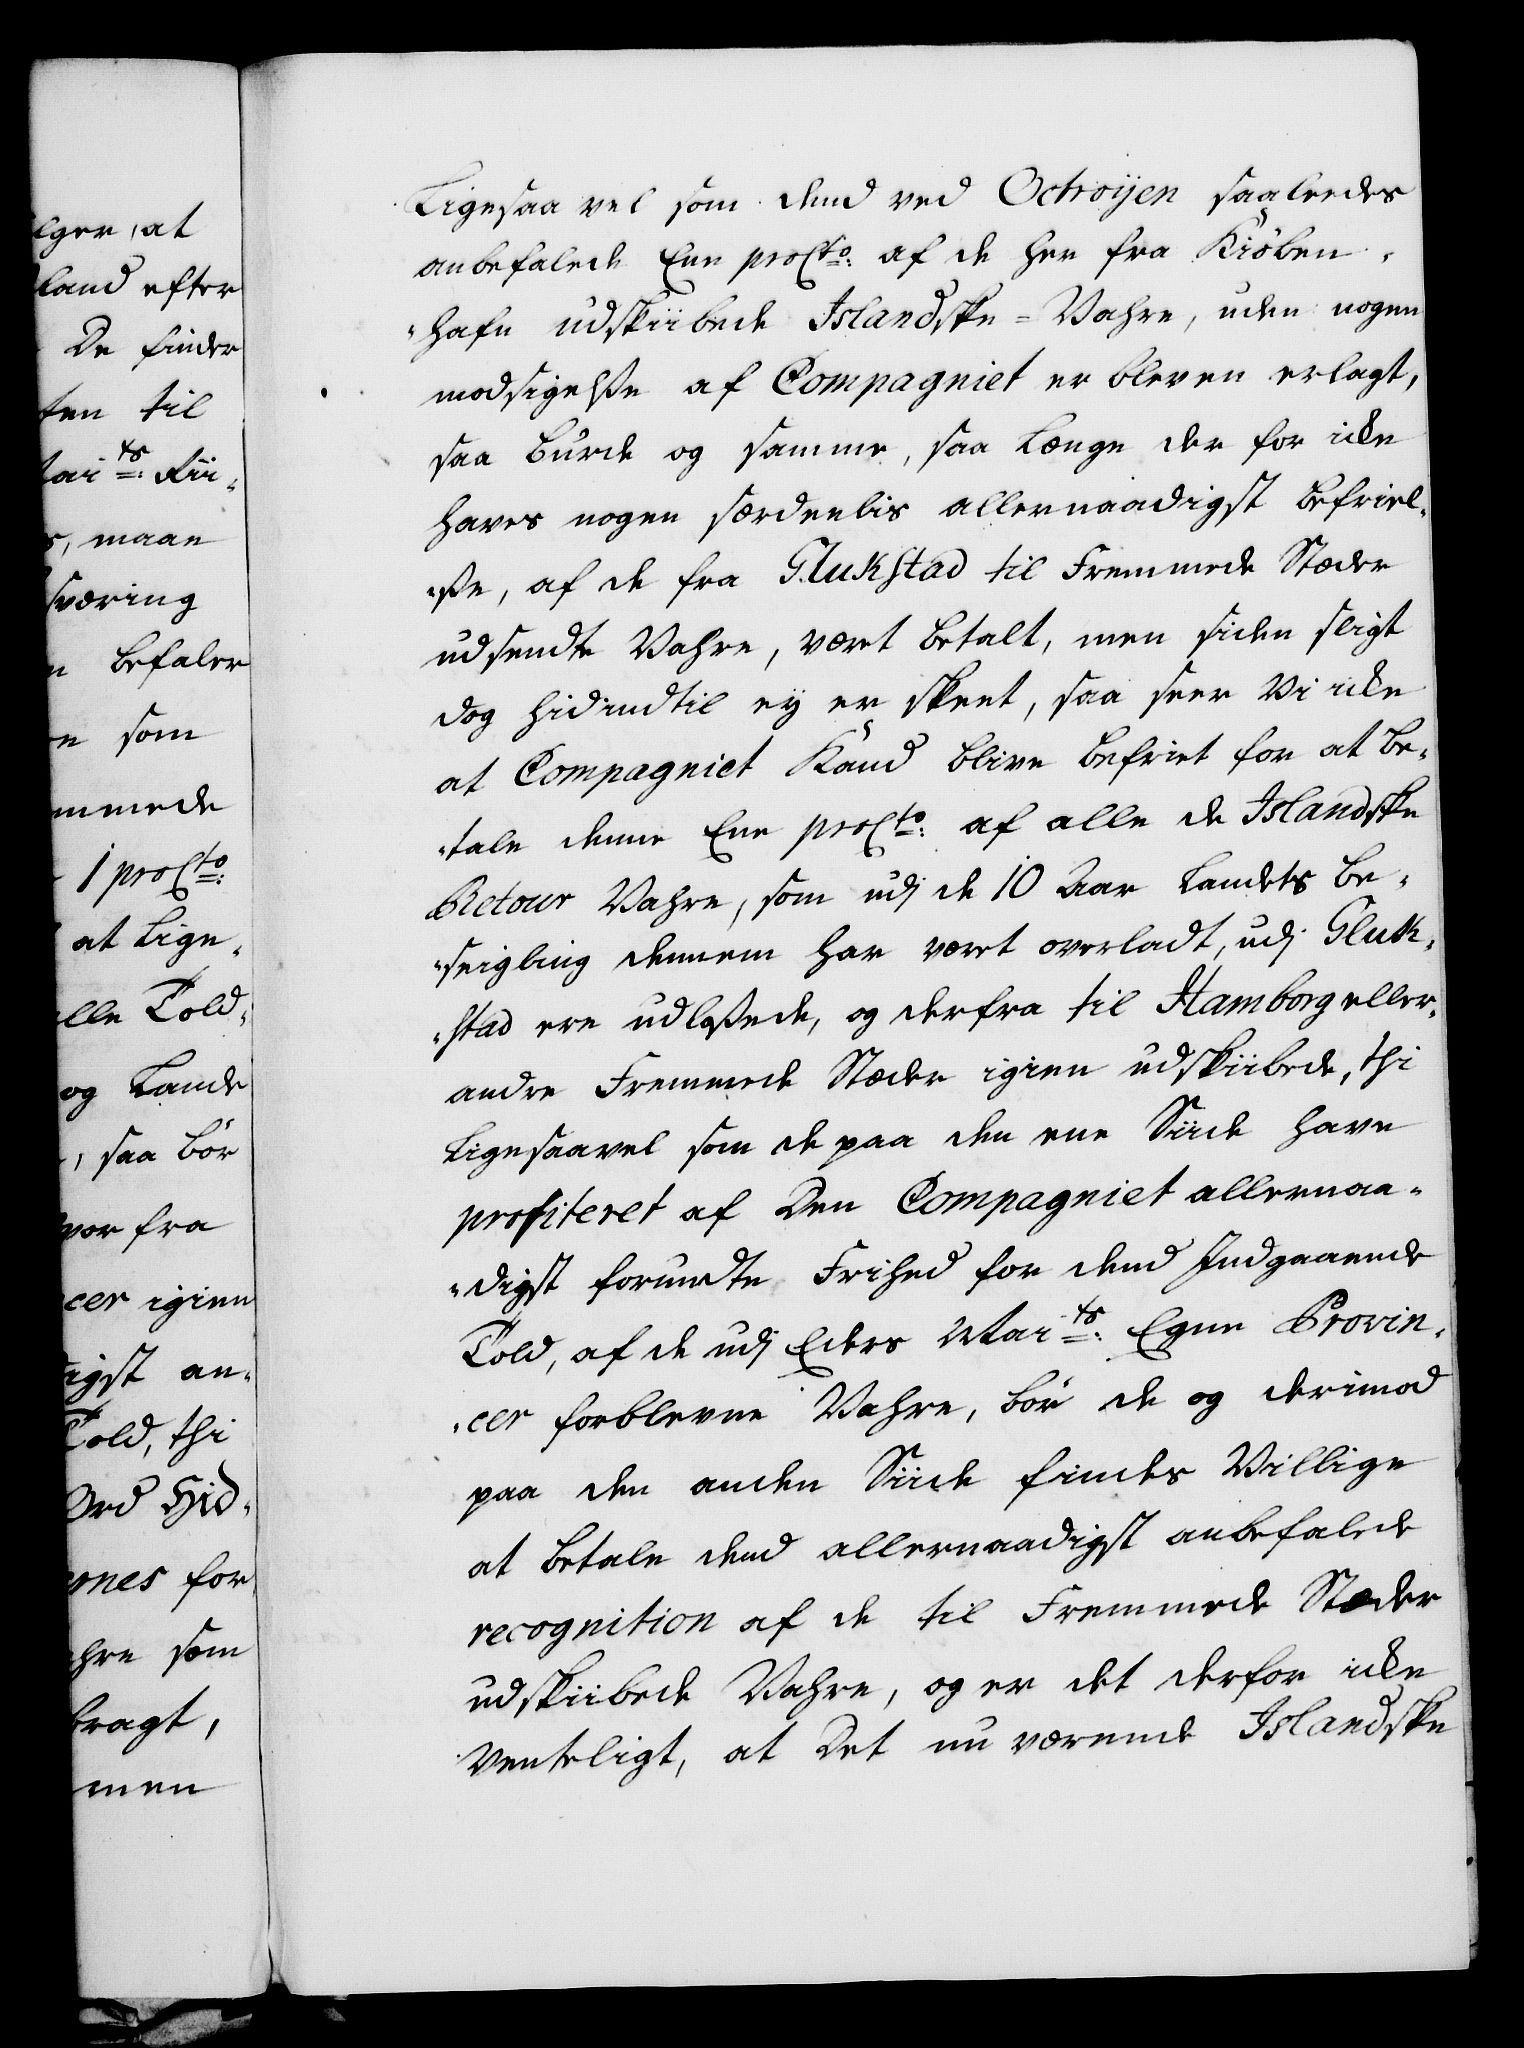 lger, at
land efter
De finder
ten til
tai ts: Rii-
s, maae
sværing
n befaler
n som
mmede
1 proCto:
at Lige-
lle Told-
og Lande
, saa bör
vor fra
cer igien
igst an-
Told, thi
Ord Hid-
rnes for
hre som
bragt,
men
Ligesaa vel som dend ved Octroijen saaleedes
anbefalede Een proCto: af de her fra Kiöben-
-hafn udskiibede Islandske-Vahre, uden nogen
modsigelsse af Compagniet er bleven erlagt,
saa burde og samme, saa længe der for icke
haves nogen særdeelis allernaadigst befriel-
-sse, af de fra Glukstad til Fremmede Stæder
udsendte Vahre, været betalt, men siden sligt
dog hidindtil ey er skeet, saa seer Vi icke
at Compagniet Kand blive befriet for at be-
-tale denne Een proCto: af alle de Islandske
Retour Vahre, som udj de 10 Aar Landets be-
-seigling dennem har været overladt, udj Gluk-
-stad ere udlossede, og derfra til Hamborg eller
andre Fremmede Stæder igien udskiibede, thi
Ligesaavel som de paa den ene Siide have
profiteret af Den Compagniet allernaa-
-digst forundte Frihed for dend Indgaaende
Told, af de udj Eders Mai ts: Egne Provin-
-cer forblevne Vahre, bör de og derimod
paa den anden Siide findes Villige
at betale dend allernaadigst anbefalede
recognition af de til Fremmede Stæder
udskiibede Vahre, og er det derfor icke
venteligt, at Det nu værende Islandske